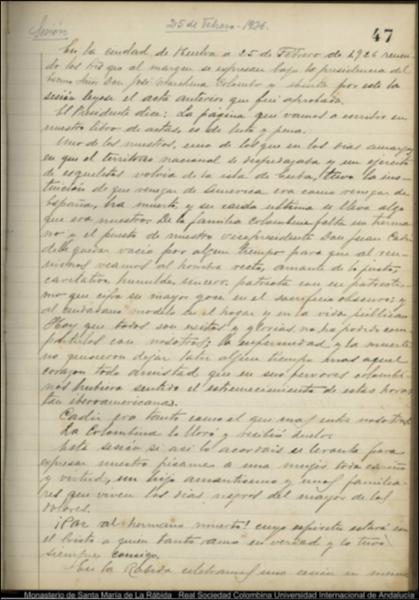 25 de Febrero - 1926.
47
Sesión
En la ciudad de Huelva a 25 de Febrero de 1926 reuni-
dos los que al margen se expresan bajo la presidencia del
Don José Marchena Colombo y abierta por este la
sesión leyose el acta anterior que fué aprobada.
El Presidente dice: La página que vamos a escribir en
nuestro libro de actas, es de luto y pena.
Uno de los nuestros, uno de los que en los días amargos
en que el territorio nacional se despedazaba y un ejército
de esqueletos volvía de la isla de Cuba, tuvo la ins-
titución de que renegar de America era como renegar de
España, ha muerto y su caída última se lleva algo
que era nuestro. De la familia colombina falta un herma-
no y el puesto de nuestro vicepresidente Don Juan Cádiz
debe quedar vacío por algun tiempo para que al reu-
nirnos veamos al hombre recto, amante de lo justo,
caritativo, humilde, sincero, patriota con un patriotis-
mo que cifra su mayor goce en el sacrificio obscuro y
al ciudadano modelo en el hogar y en la vida pública.
Hoy que todos son exitos y glorias, no ha podido com-
partirlos con nosotros; la enfermedad y la muerte
no quisieron dejar latir algun tiempo mas aquel
corazon todo amistad que en sus fervores colombi-
nos hubiera sentido el estremecimiento de estas horas
tan iberoamericanas.
Cadiz era tanto como el que mas entre nosotros.
La Colombina le lloró y recibió duelos.
Esta sesión si así lo acordais se levanta para
expresar nuestro pésame a una mujer toda cariño
y virtud, un hijo amantísimo y unos familia-
res que viven los días negros del mayor de los
dolores.
¡Paz al hermano muerto! cuyo espíritu estará con
el Cristo a quien tanto amó en verdad y lo tuvo
siempre consigo.
En la Rábida celebramos una sesión en
Monasterio de Santa María de La Rábida Real Sociedad Colombina Universidad Internacional de Andalucía